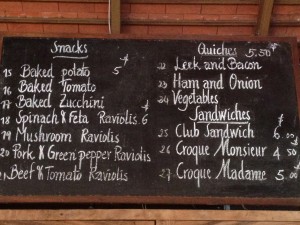 Snacks
15 Baked potato 5 €
16 Baked Tomato
17 Baked Zucchini
18 Spinach & Feta Raviolis 6 €
19 Mushroom Raviolis
20 Pork & Green pepper Raviolis
21 Beef & Tomato Raviolis
Quiches 5,50 €
22 Leek and Bacon
23 Ham and Onion
24 Vegetables
Sandwiches
25 Club Sandwich 6
26 Croque Monsieur 4 50
27 Croque Madame 5